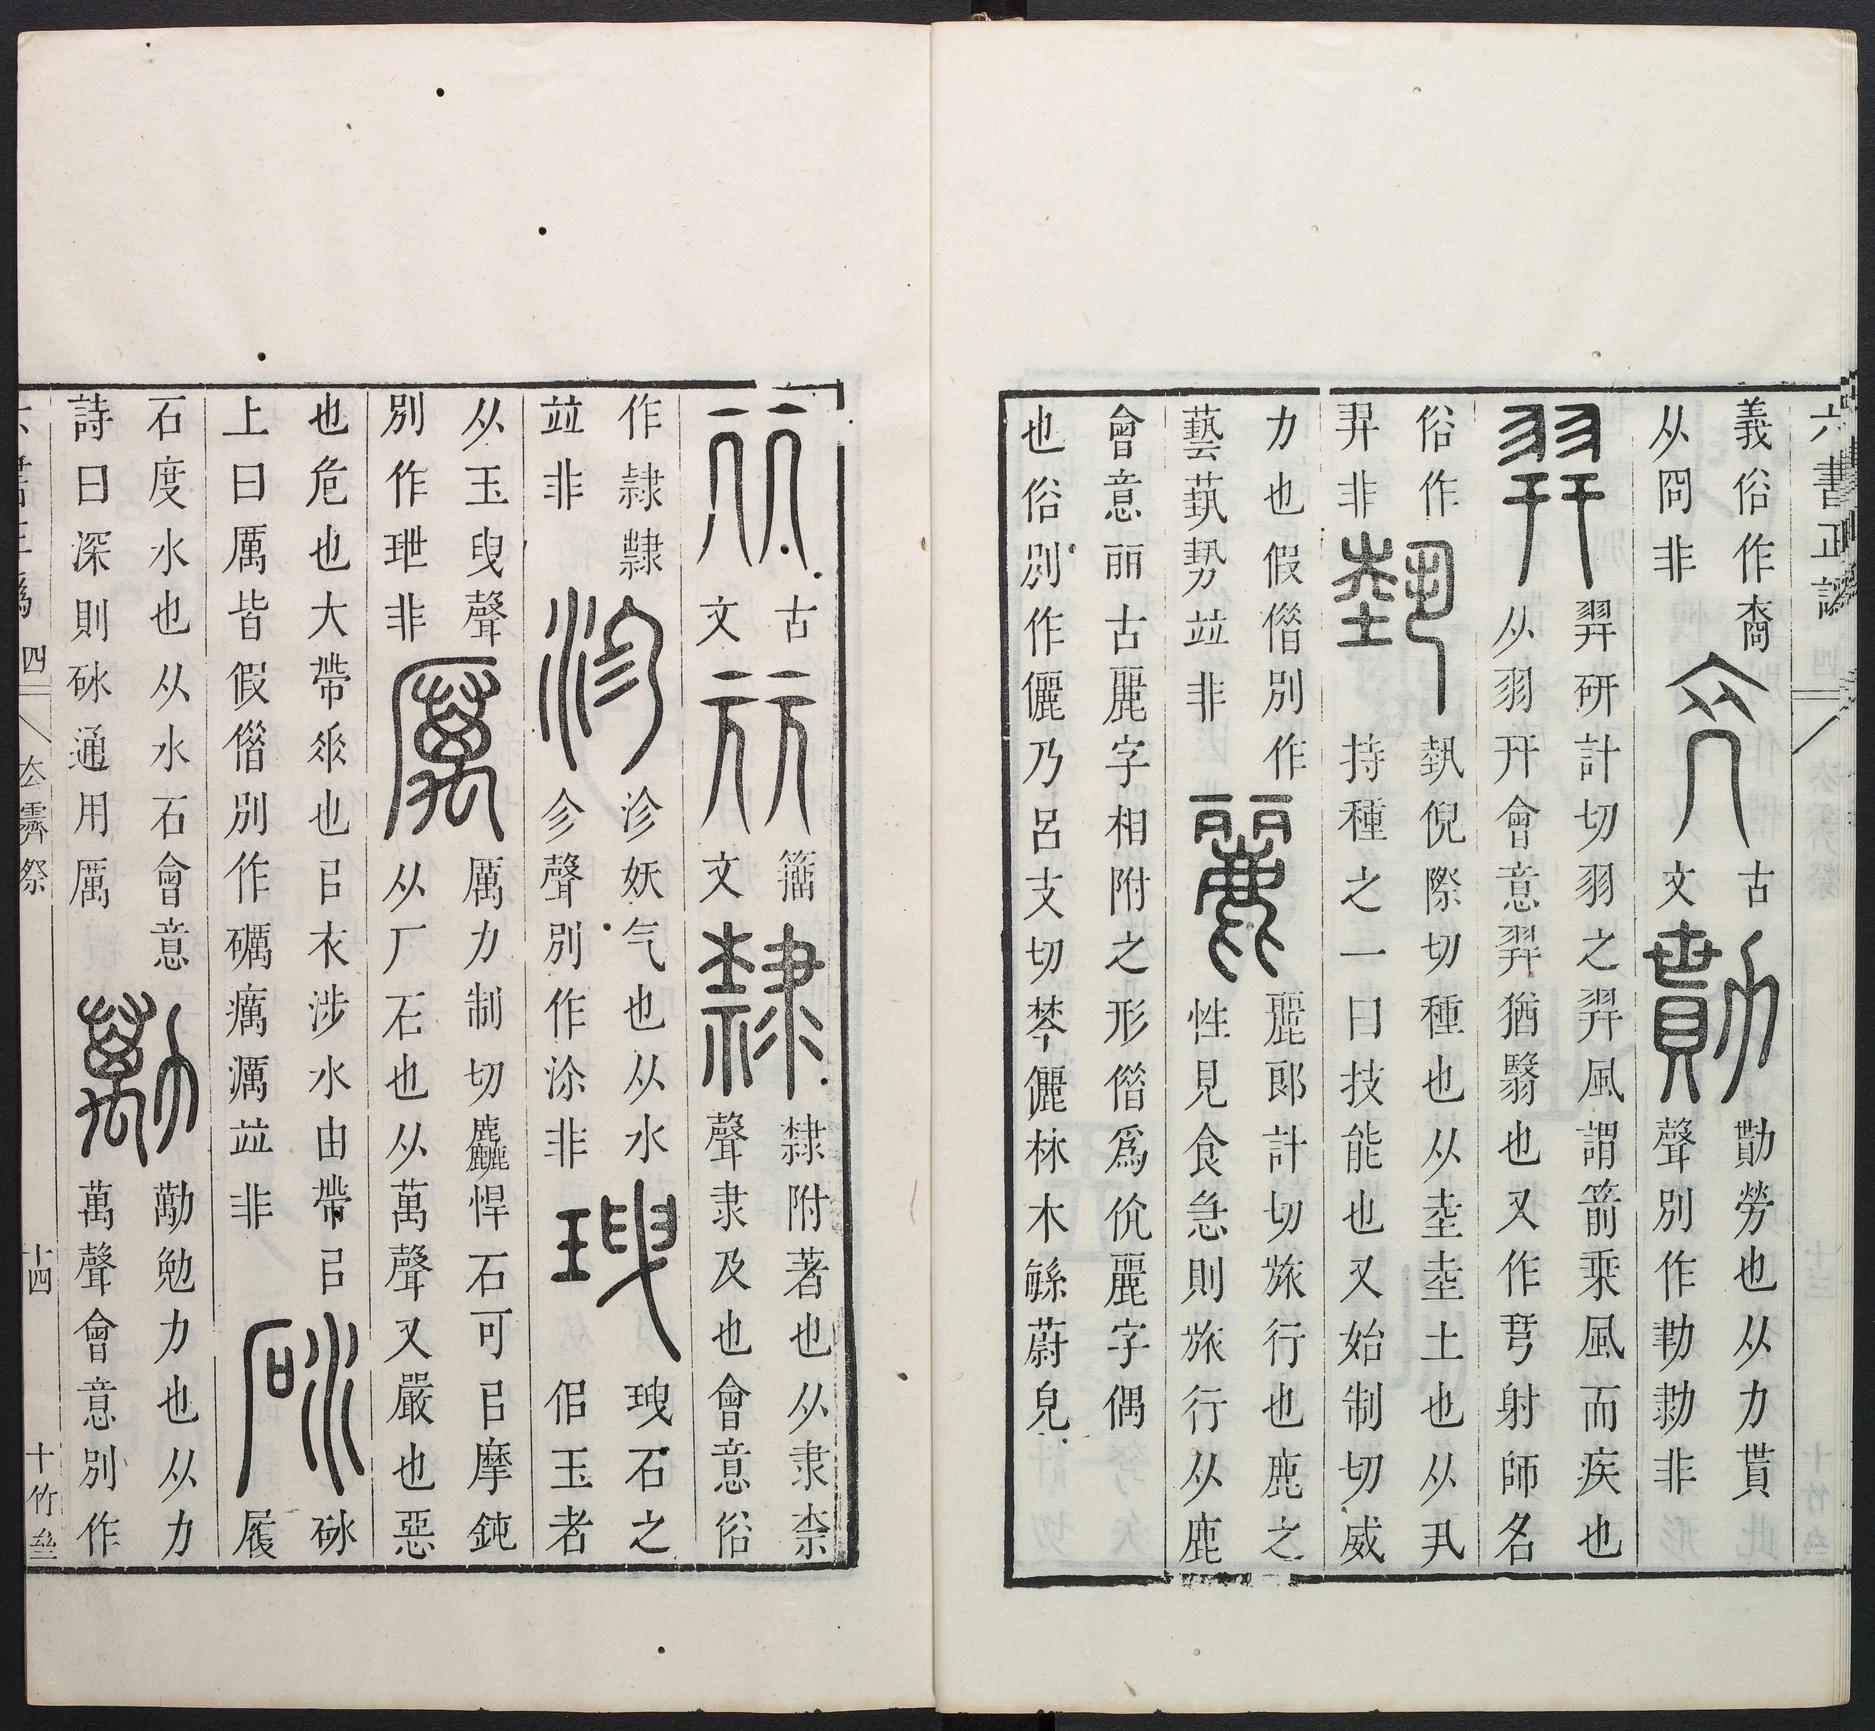 六書正譌
義俗作裔
从冏非
古
文
勩勞也从力貰
聲別作勚勩非
羿研計切羽之羿風謂箭乘風而疾也
从羽幵會意羿猶翳也又作𢏗射師名
俗作
羿非
埶倪際切種也从坴坴土也从丮
持種之一曰技能也又始制切威
力也假借別作
藝蓺勢並非
麗郎計切旅行也鹿之
性見食急則旅行从鹿
會意丽古麗字相附之形借爲伉麗字偶
也俗別作儷乃呂支切棽儷林木緐蔚皃
古
文
籀
文
隸附著也从隶柰
聲隶及也會意俗
作隷
並非
沴妖气也从水
㐱聲別作涂非
瑿石之
佀玉者
从玉𠭥聲
別作玴非
厲力制切麤悍石可㠯摩鈍
从厂石也从萬聲又嚴也惡
也危也大帶𠂢也㠯衣涉水由帶㠯
上曰厲皆假借別作礪癘濿並非
砅履
石度水也从水石會意
詩曰深則砅通用厲
勱勉力也从力
萬聲會意別作
六書正譌 四 去霽祭
十四
十竹㘸